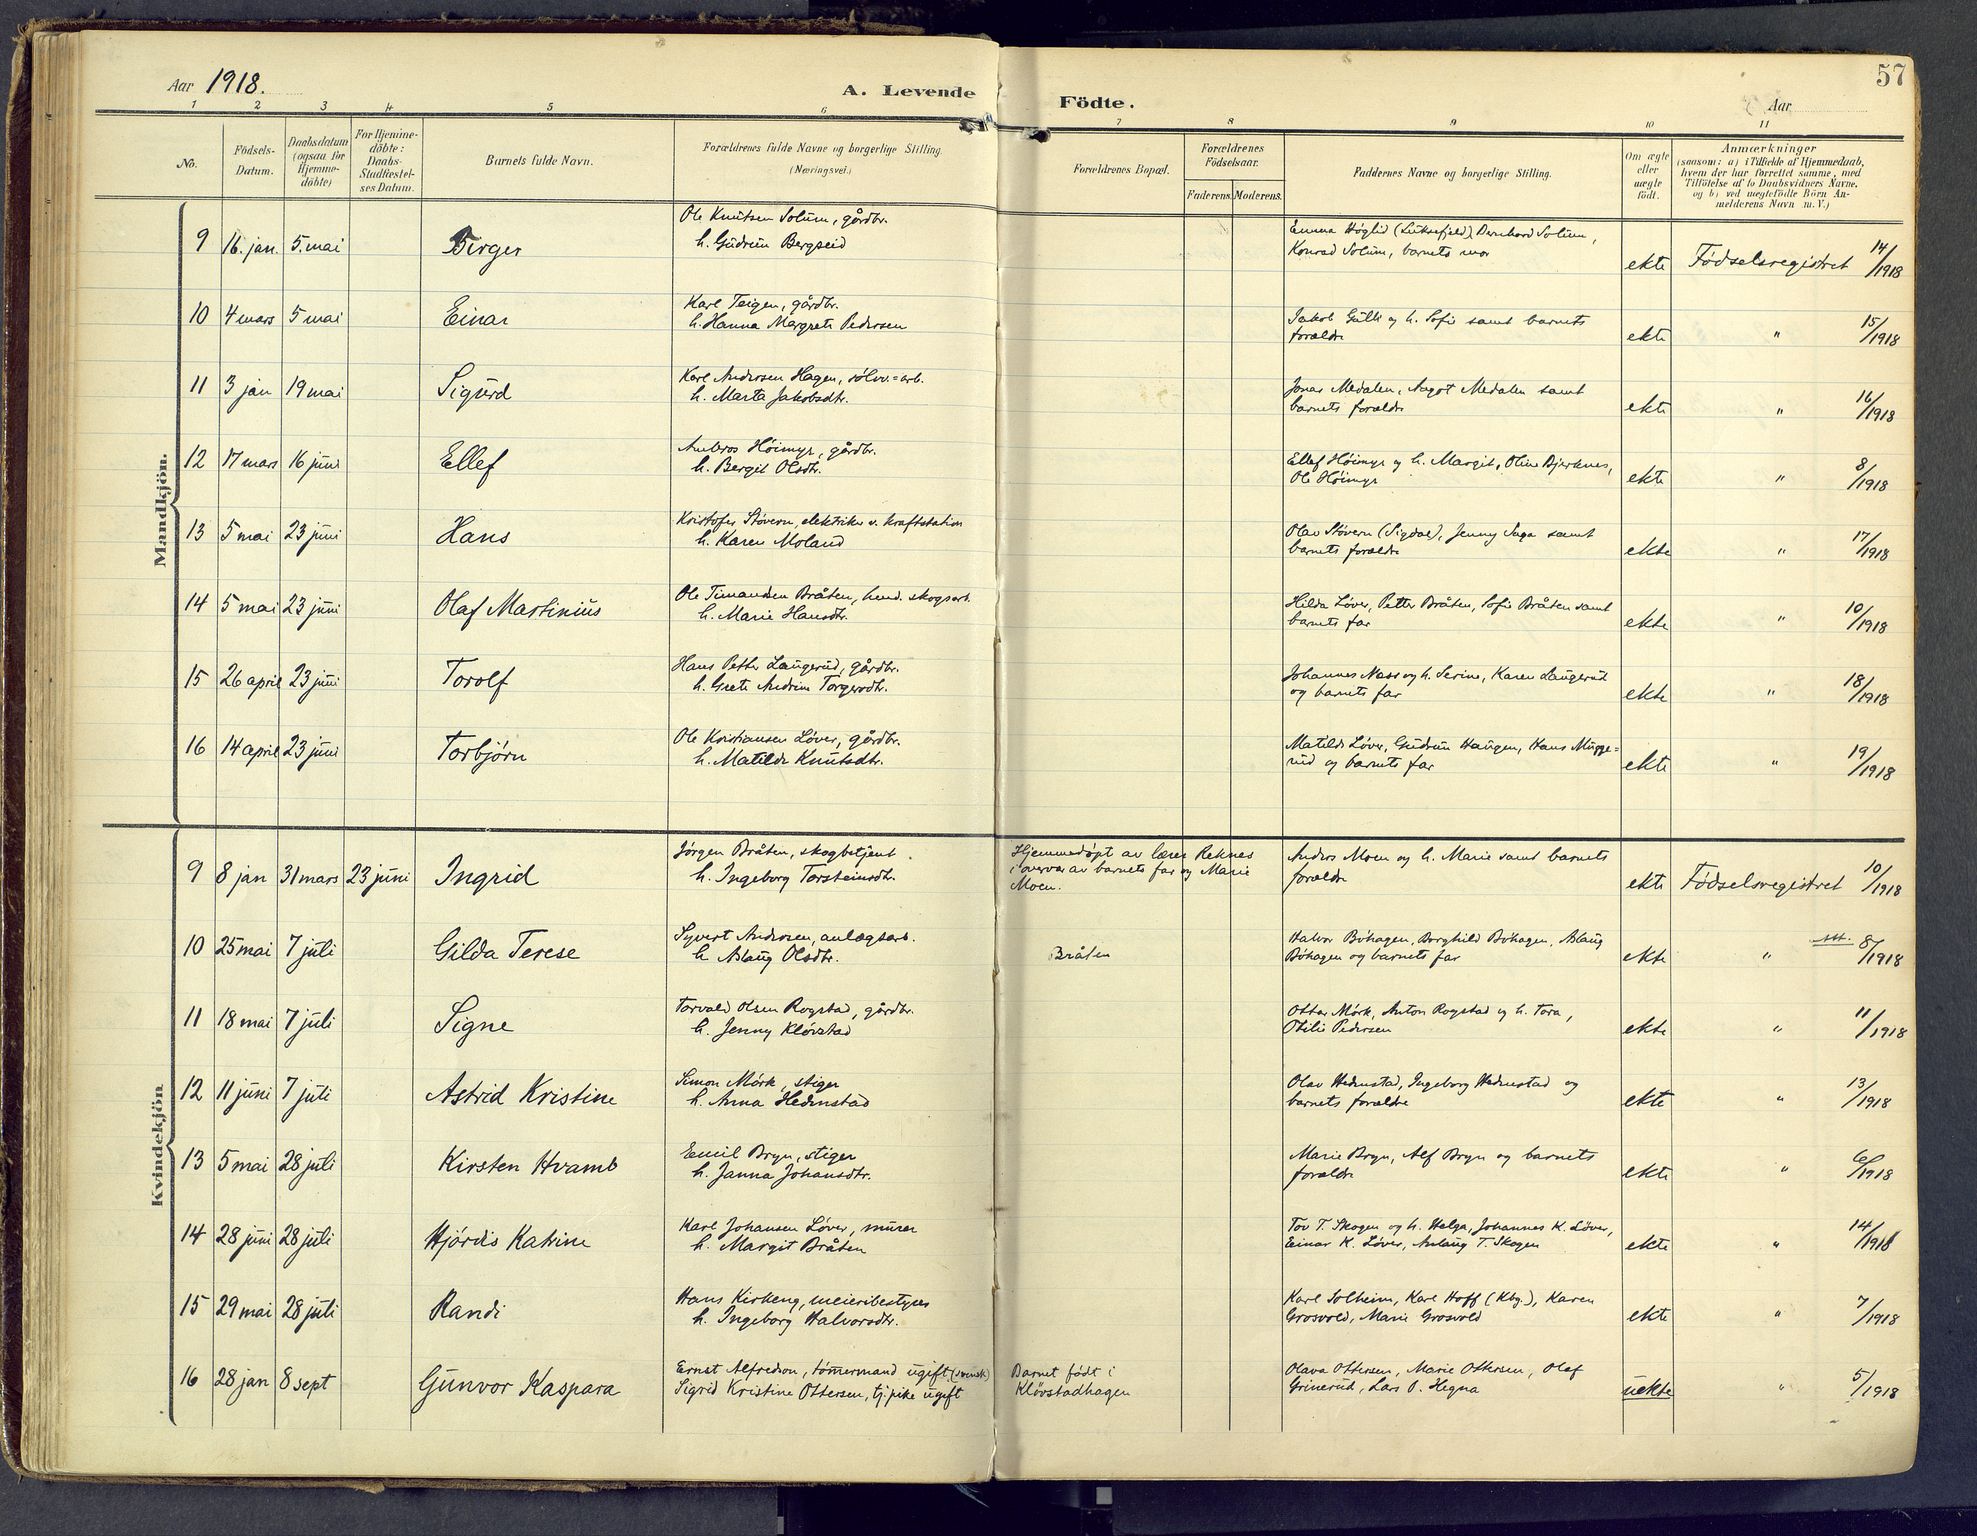 Aar 1918.
A. Levende Födte.
Aar
57
1 2 3 4 5 6 7 8 9 10 11
No.
Födsels-Datum.
Daabsdatum (ogsaa for Hjemmedöbte)
For Hjemmedöbte: Daabs-Stadfæstelses Datum.
Barnets fulde Navn.
Forældrenes fulde Navne og borgerlige Stilling. (Næringsvei.)
Forældrenes Bopæl.
Forældrenes Födselsaar.
Faderens. Moderens.
Faddernes Navne og borgerlige Stilling.
Om ægte eller uægte födt.
Anmærkninger
(saasom: a) i Tilfælde af Hjemmedaab, hvem der har forrettet samme, med Tilföielse af to Daabsvidners Navne, og b) ved uægtefödte Börn Anmelderens Navn m. V.)
Mandkjön.
9 16. jan. 5 mai Birger Ole Knutsen Solum, gårdbr. Emma Høglid (Luksefjeld) Bernhard Solum,
h. Gudrun Bergseid Konrad Solum, barnets mor ekte Fødselsregistret 14/1918
10 4 mars 5 mai Einar Karl Teigen, gårdbr. Jakob Gulli og h. Sofie samt barnets
h. Hanna Margrete Pedersen forældre ekte " 15/1918
11 3 jan 19 mai Sigurd Karl Andersen Hagen, sølvv.=arb. Jonas Medalen, Aagot Medalen samt
h. Marta Jakobsdtr. barnets forældre ekte " 16/1918
12 17 mars 16 juni Ellef Ambros Høimyr, gårdbr. Ellef Høimyr og h. Margit, Oline Bjerknes,
h. Bergit Olsdtr. Ole Høimyr ekte " 8/1918
13 5 mai 23 juni Hans Kristofer Støvern, elektriker v. kraftstation Olav Støvern (Sigdal), Jenny Saga samt
h. Karen Moland barnets forældre ekte " 17/1918
14 5 mai 23 juni Olaf Martinius Ole Timansen Bråten, hmd. skogsarb. Hilda Løver, Petter Bråten, Sofie Bråten samt
h. Marie Hansdtr. barnets far ekte " 10/1918
15 26 april 23 juni Torolf Hans Petter Laugerud, gårdbr. Johannes Næss og h. Serine, Karen Laugerud
h. Grete Andrine Torgersdtr. og barnets far ekte " 18/1918
16 14 april 23 juni Torbjørn Ole Kristiansen Løver, gårdbr. Matilde Løver, Gudrun Haugen, Hans Mugge=
h. Matilde Knutsdtr. rud og barnets far ekte " 19/1918
Kvindekjön
9 8 jan 31 mars 23 juni Ingrid Jørgen Bråten, skogbetjent Hjemmedøpt av lærer Reknes Anders Moen og h. Marie samt barnets
h. Ingeborg Torsteinsdtr. i overvær av barnets far og Marie forældre ekte Fødselsregistret 10/1918
Moen.
10 25 mai 7 juli Gilda Terese Syvert Andersen, anlægsarb. Bråten Halvor Bøhagen, Borghild Bøhagen, Aslaug
h. Aslaug Olsdtr. Bøhagen og barnets far ekte " Att. 8/1918
11 18 mai 7 juli Signe Torvald Olsen Rogstad, gårdbr. Ottar Mørk, Anton Rogstad og h. Tora,
h. Jenny Kløvstad Otilie Pedersen ekte " 11/1918
12 11 juni 7 juli Astrid Kristine Simon Mørk, stiger Olav Hedenstad, Ingeborg Hedenstad og
h. Anna Hedenstad barnets forældre ekte " 13/1918
13 5 mai 28 juli Kirsten Hvamb Emil Bryn, stiger Marie Bryn, Alf Bryn og barnets
h. Janna Johansdtr. forældre ekte " 6/1918
14 28 juni 28 juli Hjördis Katrine Karl Johansen Løver, murer Tov T. Skogen og h. Helga, Johannes K. Løver,
h. Margit Bråten Einar K. Løver, Aslaug T. Skogen ekte " 14/1918
15 29 mai 28 juli Randi Hans Kirkeng, meieribestyrer Karl Solheim, Karl Hoff (Kbg.), Karen
h. Ingeborg Halvorsdtr. Grosvold, Marie Grosvold ekte " 7/1918
16 28 jan 8 sept Gunvor Kaspara Ernst Alfredson, tømmermand ugift (svensk) Barnet født i Olava Ottersen, Marie Ottersen, Olaf
Sigrid Kristine Ottersen, tj.pike ugift Kløvstadhagen Grinerud, Lars O. Hegna uekte " 5/1918